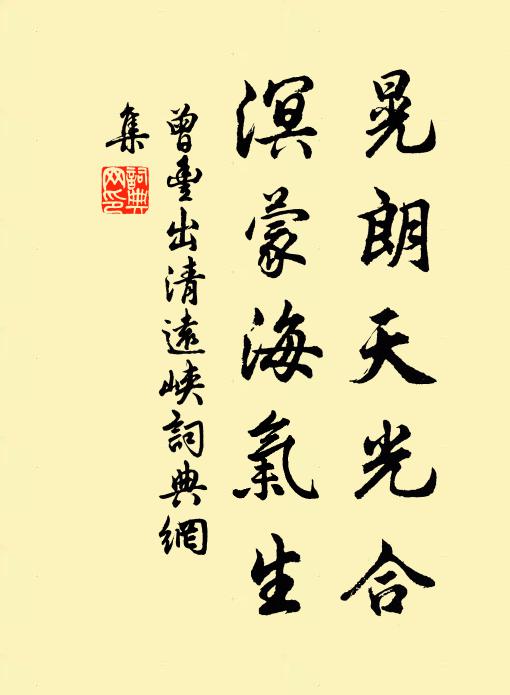 晃朗天光合
溟蒙海氣生
曾豐出清遠峽詞典網
集
詞典
网印